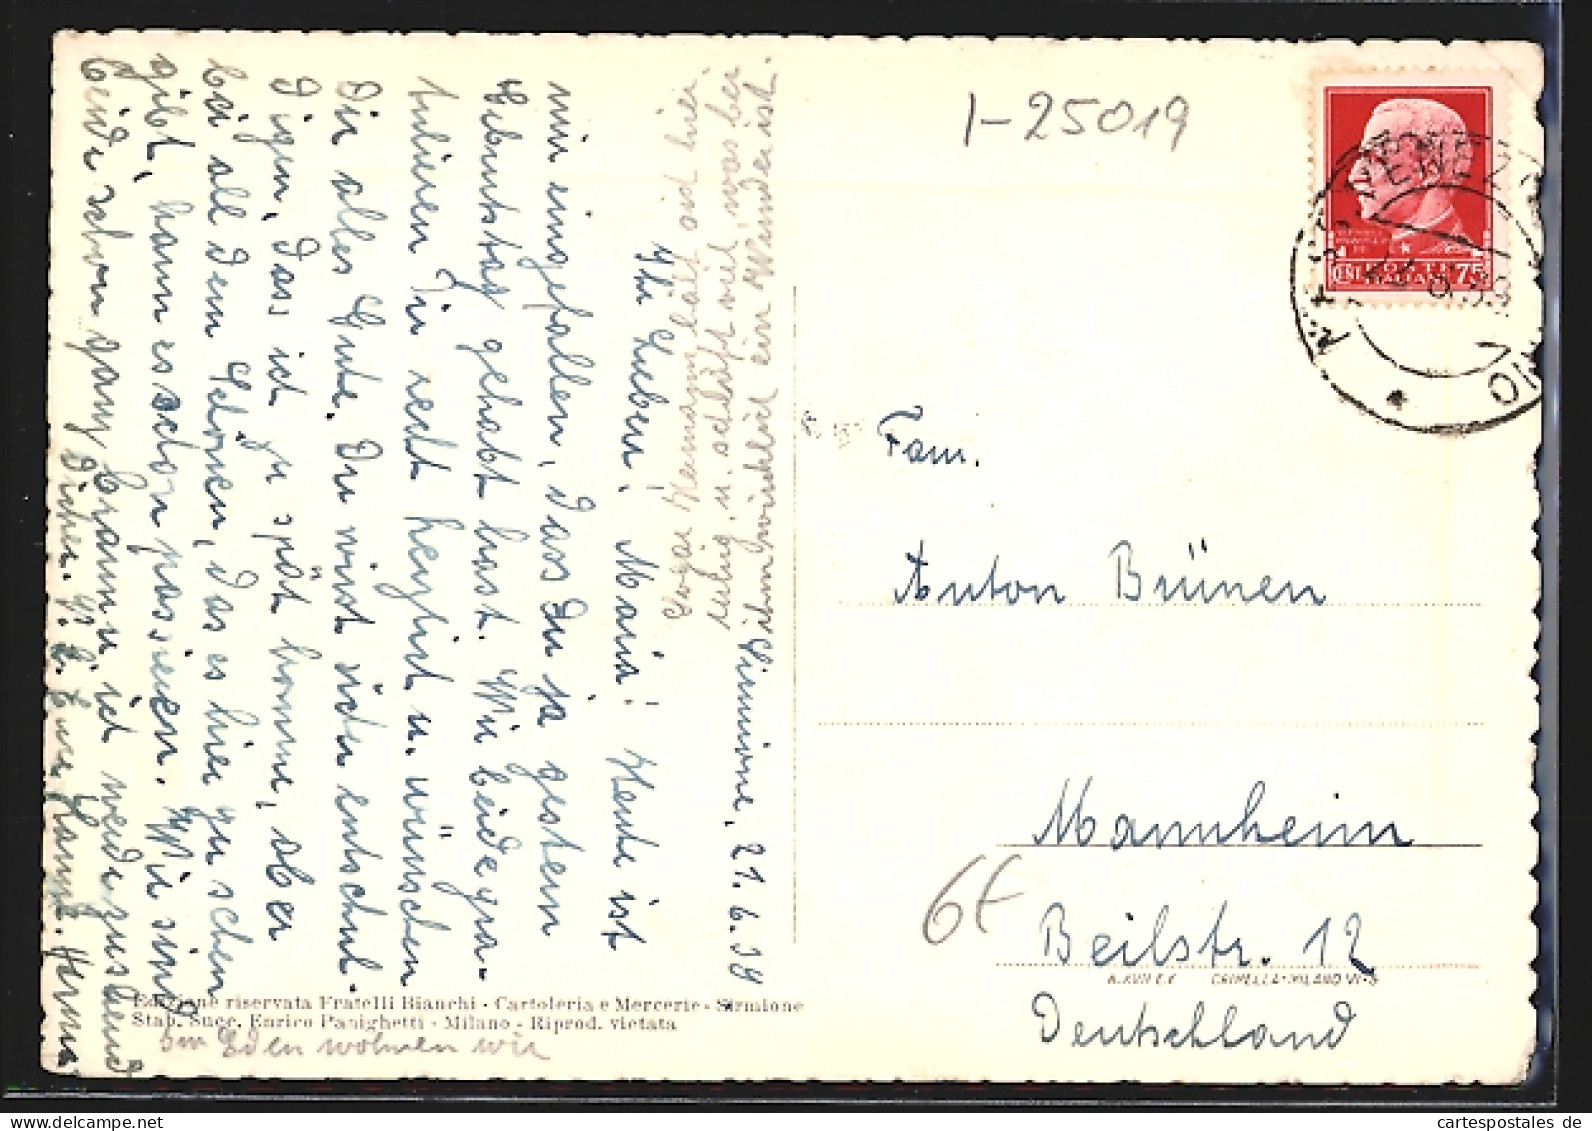 Sirmione, 21.6.39
Ihr Lieben! Maria! Heute ist
mir eingefallen, dass Du ja gestern
Geburtstag gehabt hast. Wir beide gra-
tulieren Dir recht herzlich u. wünschen
Dir alles Gute. Du wirst sicher entschul-
digen, dass ich zu spät komme, aber
bei all dem Schönen, das es hier zu sehen
gibt, kann es schon passieren. Wir sind
beide schon ganz braun u. ich werde zusehend
dicker. H. G. Eure Hanna
Sogar Hermann hält sich hier
ruhig u. schläft viel was bei
ihm wirklich ein Wunder ist.
Im Eden wohnen wir
Edizione riservata Fratelli Bianchi - Cartoleria e Mercerie - Sirmione
Stab. Succ. Enrico Panighetti - Milano - Riprod. vietata
I-25019
POSTE
ITALIANE
CENT. 75
Fam.
Anton Brünen
Mannheim
6€
Beilstr. 12
Deutschland
cartespostales.de